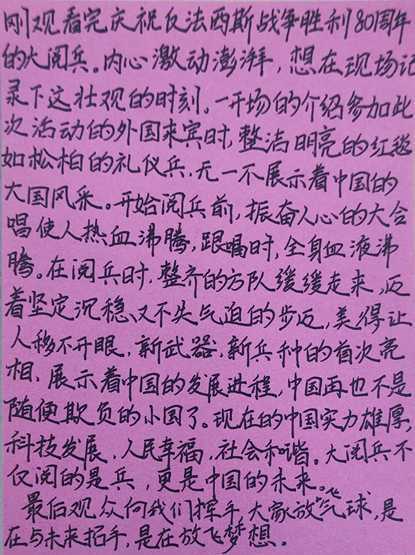 刚观看完庆祝反法西斯战争胜利80周年
的大阅兵。内心激动澎湃，想在现场记
录下这壮观的时刻。一开场的介绍参加此
次活动的外国来宾时，整洁明亮的红毯
如松柏的礼仪兵，无一不展示着中国的
大国风采。开始阅兵前，振奋人心的大合
唱使人热血沸腾，跟唱时，全身血液沸
腾。在阅兵时，整齐的方队缓缓走来，迈
着坚定沉稳又不失气迫的步迈，美得让
人移不开眼，新武器，新兵种的首次亮
相，展示着中国的发展进程，中国再也不是
随便欺负的小国了。现在的中国实力雄厚，
科技发展，人民幸福，社会和谐。大阅兵不
仅阅的是兵，更是中国的未来。
最后观众向我们挥手，大家放飞气球，是
在与未来招手，是在放飞梦想。